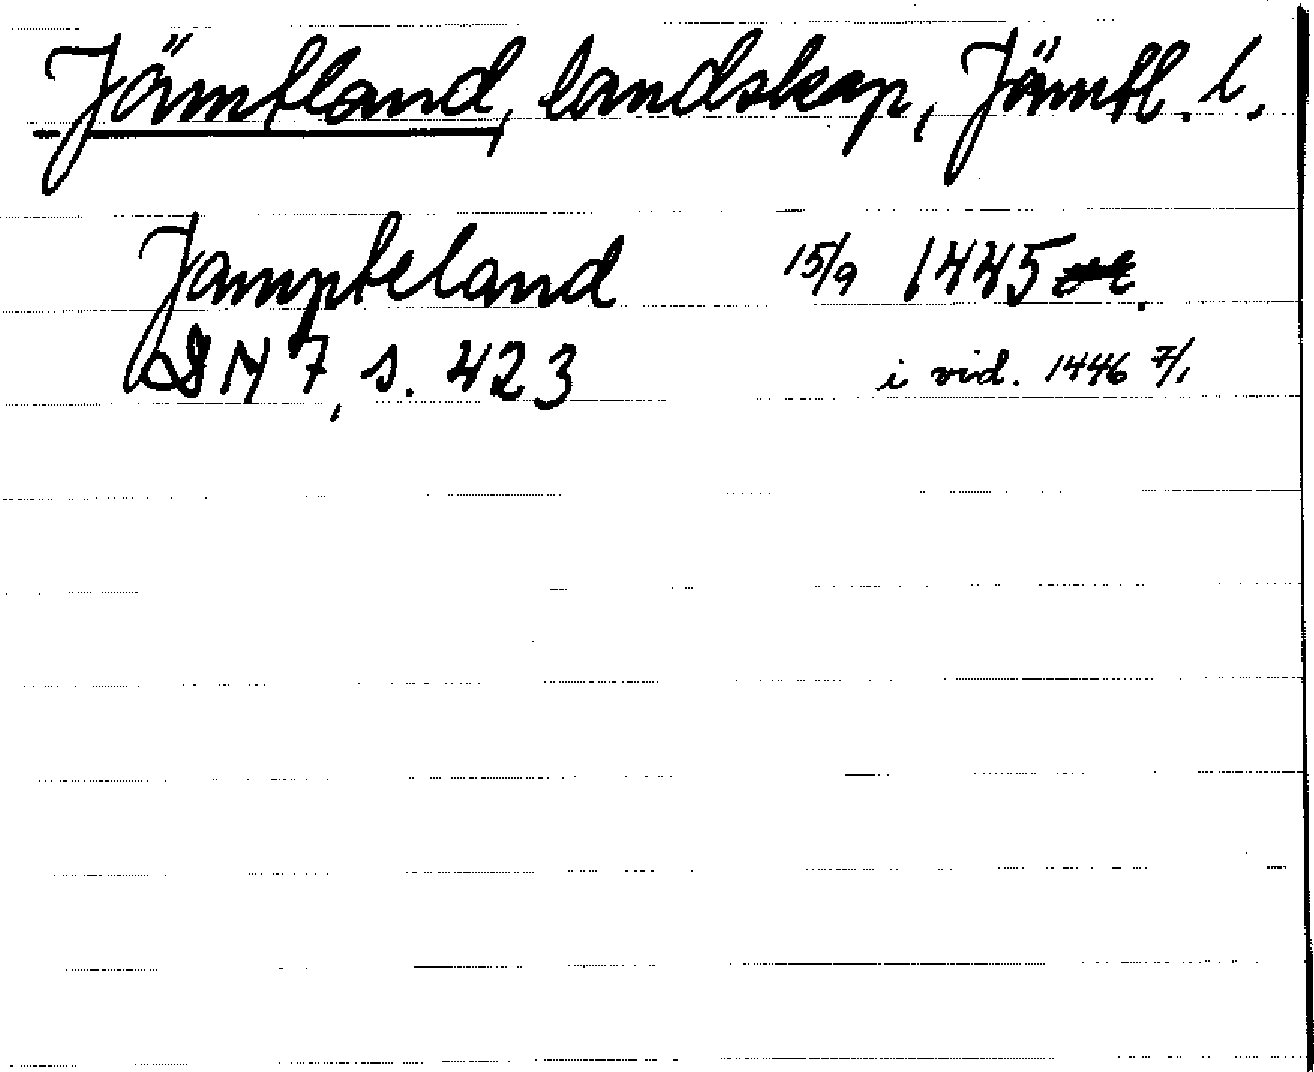 Jämtland, landskap, Jämtl. l.
Jampteland 15/9 1445
DN 7, s. 423 i vid. 1446 7/1